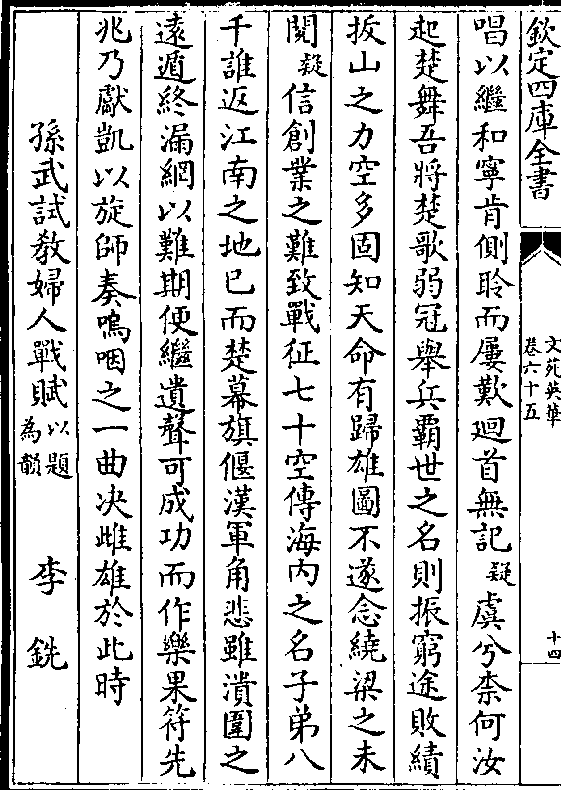 欽定四庫全書
文苑英華
卷六十五
十四
唱以繼和寧肯側聆而屢歎迴首無記疑虞兮柰何汝
起楚舞吾將楚歌弱冠舉兵覇世之名則振窮途敗績
拔山之力空多固知天命有歸雄圖不遂念繞梁之未
闋疑信創業之難致戰征七十空傳海内之名子弟八
千誰返江南之地已而楚幕旗偃漢軍角悲雖潰圍之
遠遁終漏網以難期便繼遺聲可成功而作樂果符先
兆乃獻凱以旋師奏嗚咽之一曲决雌雄於此時
孫武試教婦人戰賦以題為韻 李銑